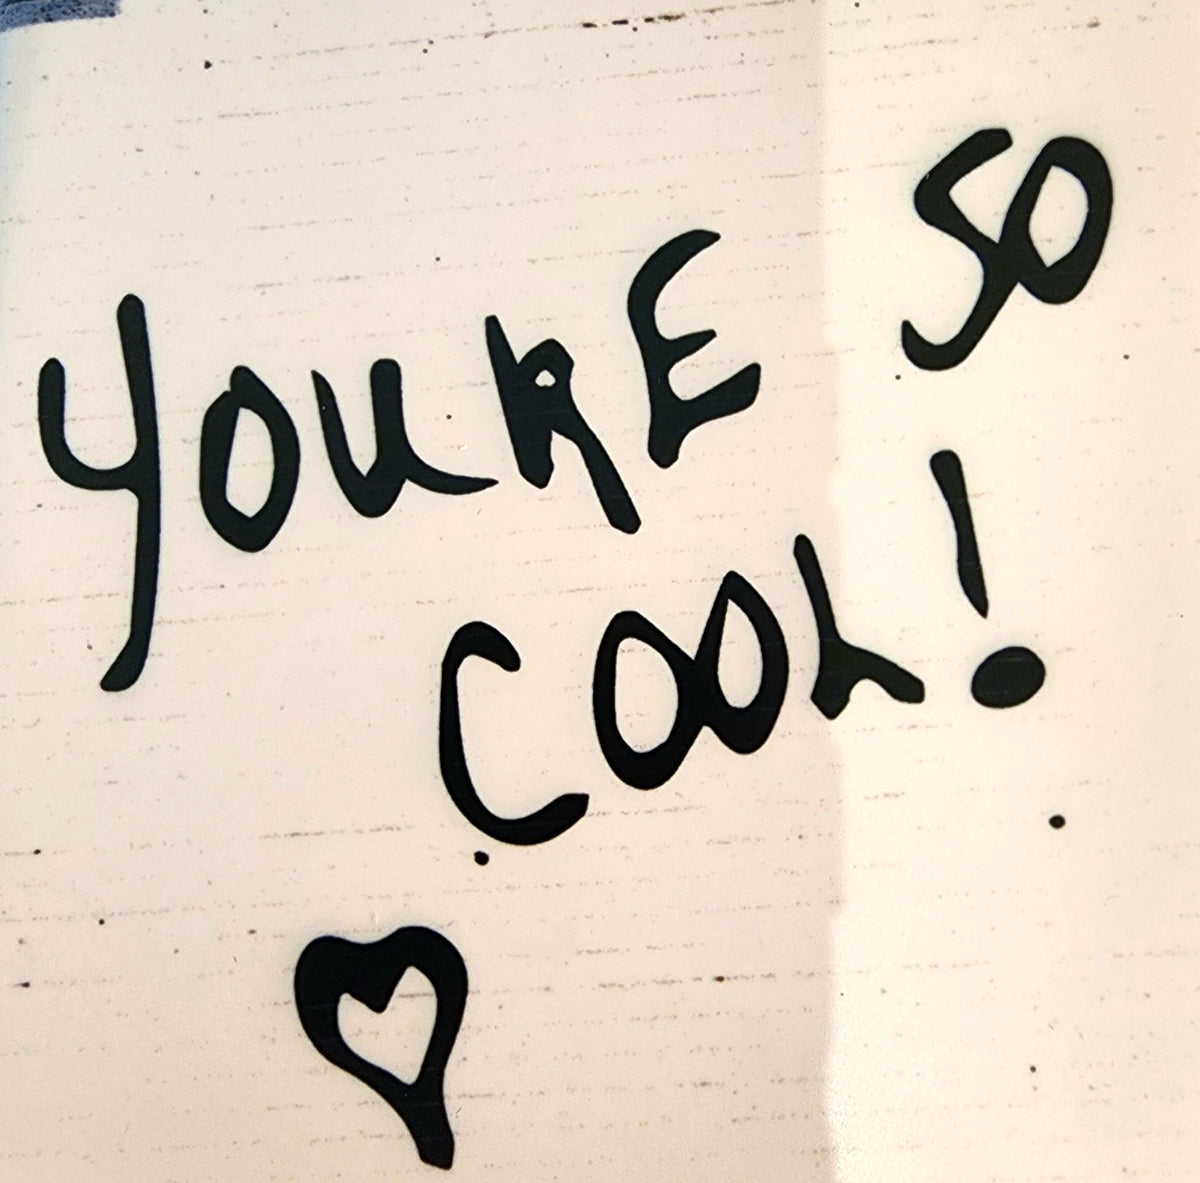 YOURE SO
COOL!